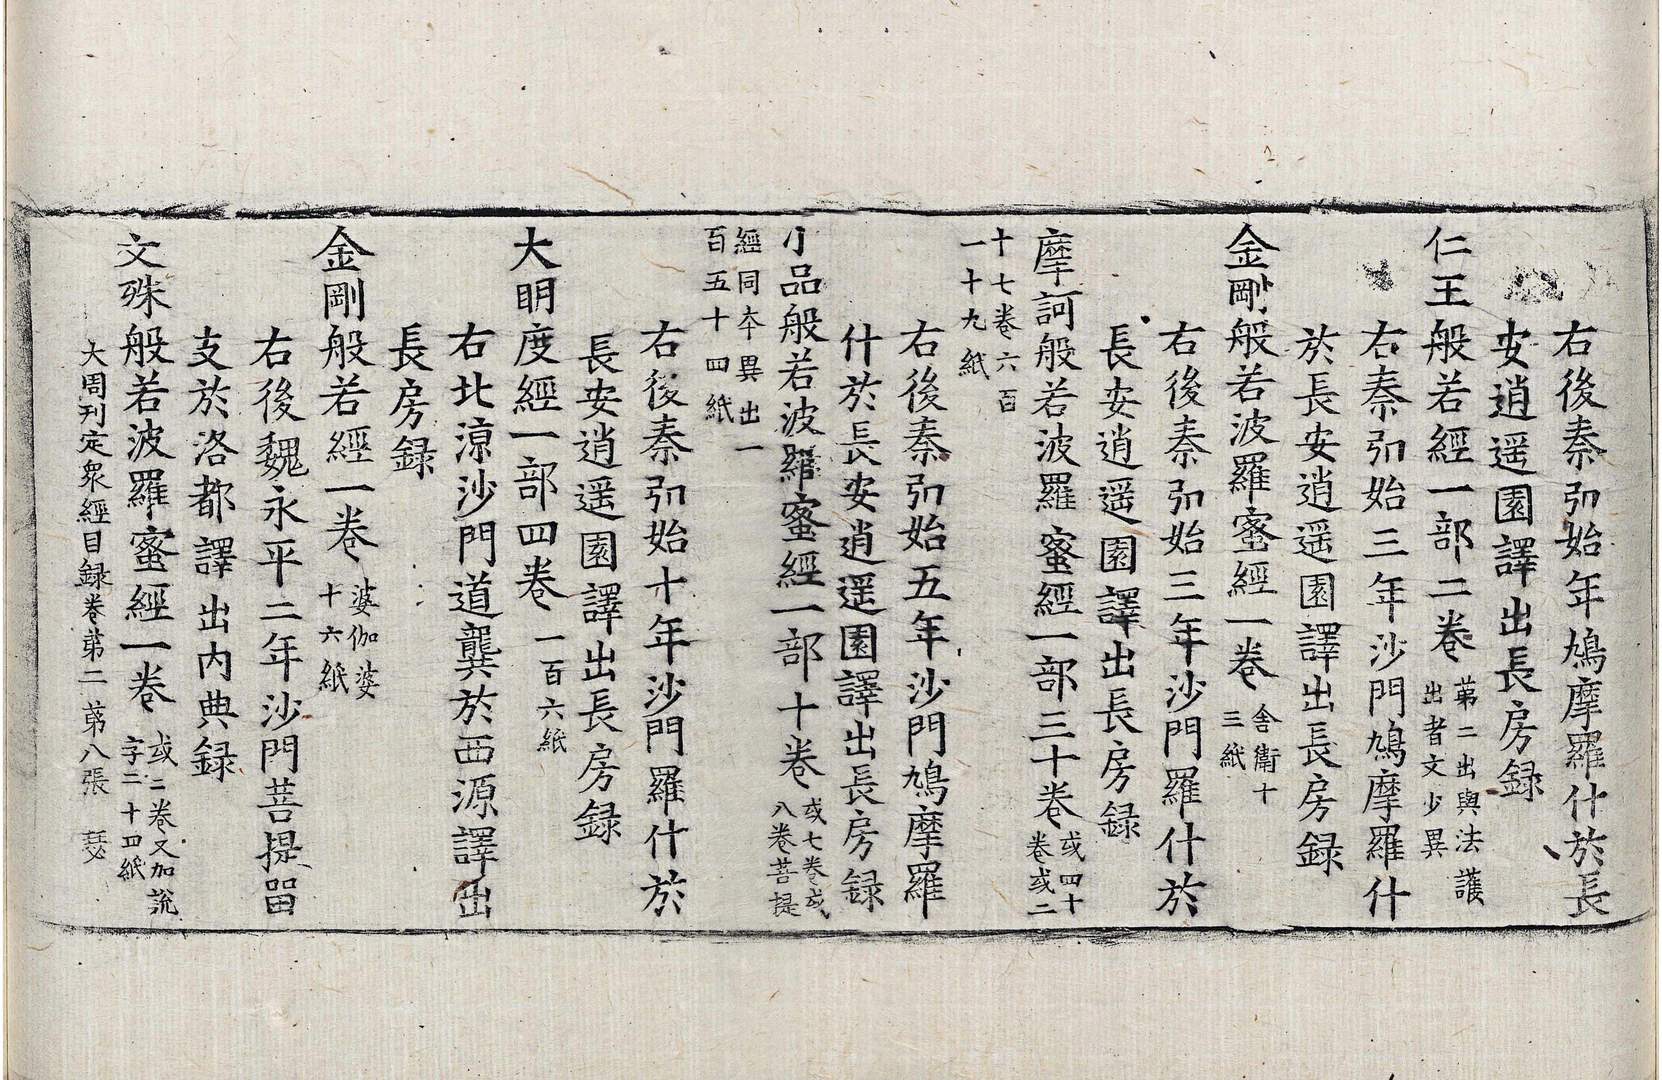 右後秦弘始年鳩摩羅什於長
安逍遥園譯出長房録
仁王般若經一部二卷
第二出與法護
出者文少異
右秦弘始三年沙門鳩摩羅什
於長安逍遥園譯出長房録
金剛般若波羅蜜經一卷
舍衛十
三紙
右後秦弘始三年沙門羅什於
長安逍遥園譯出長房録
摩訶般若波羅蜜經一部三十卷
或四十
卷或二
十七卷六百
一十九紙
右後秦弘始五年沙門鳩摩羅
什於長安逍遥園譯出長房録
小品般若波羅蜜經一部十卷
或七卷或
八卷菩提
經同夲異出一
百五十四紙
右後秦弘始十年沙門羅什於
長安逍遥園譯出長房録
大明度經一部四卷
一百六紙
右北涼沙門道龔於西源譯出
長房録
金剛般若經一卷
婆伽婆
十六紙
右後魏永平二年沙門菩提留
支於洛都譯出内典録
文殊般若波羅蜜經一卷
或二卷又加說
字二十四紙
大周刊定衆經目録卷第二 第八張 瑟